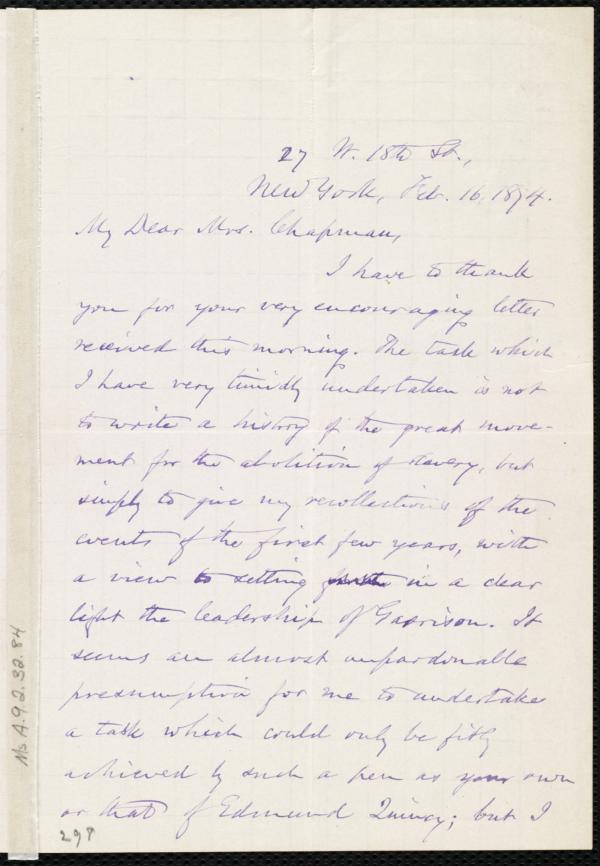 27 W. 18th St.,
New York, Feb. 16, 1874.
My Dear Mrs. Chapman,
I have to thank
you for your very encouraging letter
received this morning. The task which
I have very timidly undertaken is not
to write a history of the great move-
ment for the abolition of slavery, but
simply to give my recollections of the
events of the first few years, with
a view to setting forth in a clear
light the leadership of Garrison. It
seems an almost unpardonable
presumption for me to undertake
a task which could only be fitly
achieved by such a pen as your own
or that of Edmund Quincy; but I
298
Ms A.9.2.32.84